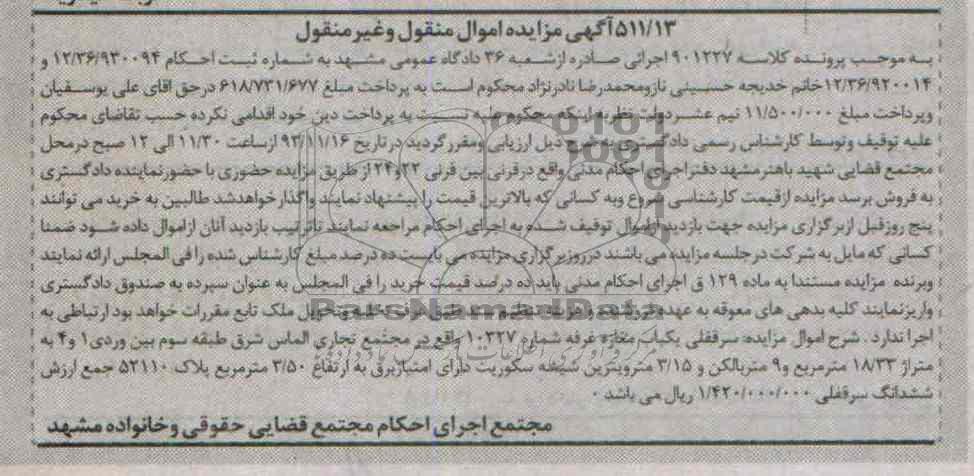 ۵۱۱/۱۳ آگهی مزایده اموال منقول وغیر منقول
به موجب پرونده کلاسه ۹۰۱۲۲۷ اجرائی صادره از شعبه ۳۶ دادگاه عمومی مشهد به شماره ثبت احکام ۱۲/۳۶/۹۳۰۰۹۴ و
۱۲/۳۶/۹۲۰۰۱۴ خانم خدیجه حسینی نازومحمدرضا نادرنژاد محکوم است به پرداخت مبلغ ۶۱۸/۷۳۱/۶۷۷ درحق اقای علی یوسفیان
وپرداخت مبلغ ۱۱/۵۰۰/۰۰۰ نیم عشردولت نظربه اینکه محکوم علیه نسبت به پرداخت دین خود اقدامی نکرده حسب تقاضای محکوم
علیه توقیف وتوسط کارشناس رسمی دادگستری به شرح ذیل ارزیابی ومقرر گردید درتاریخ ۹۳/۱۱/۱۶ ازساعت ۱۱/۳۰ الی ۱۲ صبح درمحل
مجتمع قضایی شهید باهنرمشهد دفتراجرای احکام مدنی واقع درقرنی بین قرنی ۲۲و۲۴ از طریق مزایده حضوری با حضورنماینده دادگستری
به فروش برسد مزایده ازقیمت کارشناسی شروع وبه کسانی که بالاترین قیمت را پیشنهاد نمایند واگذارخواهدشد طالبین به خرید می توانند
پنج روزقبل ازبرگزاری مزایده جهت بازدید ازاموال توقیف شده به اجرای احکام مراجعه نمایند تاترتیب بازدید آنان ازاموال داده شود ضمنا
کسانی که مایل به شرکت درجلسه مزایده می باشند درروزبرگزاری مزایده می بایست ده درصد مبلغ کارشناس شده را فی المجلس ارائه نمایند
وبرنده مزایده مستندا به ماده ۱۲۹ ق اجرای احکام مدنی باید ده درصد قیمت خرید را فی المجلس به عنوان سپرده به صندوق دادگستری
واریزنمایند کلیه بدهی های معوقه به عهده فروشنده وهزینه تنظیم سند طبق عرف تخلیه وتحویل ملک تابع مقررات خواهد بود ارتباطی به
اجرا ندارد . شرح اموال مزایده: سرقفلی یکباب مغازه غرفه شماره ۱۰۳۲۷ واقع در مجتمع تجاری الماس شرق طبقه سوم بین وردی ۱ و۴ به
متراژ ۱۸/۳۳ مترمربع و۹ متربالکن و ۳/۱۵ مترویترین شیشه سکوریت دارای امتیازبرق به ارتفاع ۳/۵۰ مترمربع پلاک ۵۲۱۱۰ جمع ارزش
ششدانگ سرقفلی ۱/۴۲۰/۰۰۰/۰۰۰ ریال می باشد .
مجتمع اجرای احکام مجتمع قضایی حقوقی وخانواده مشهد
ParsNamadData